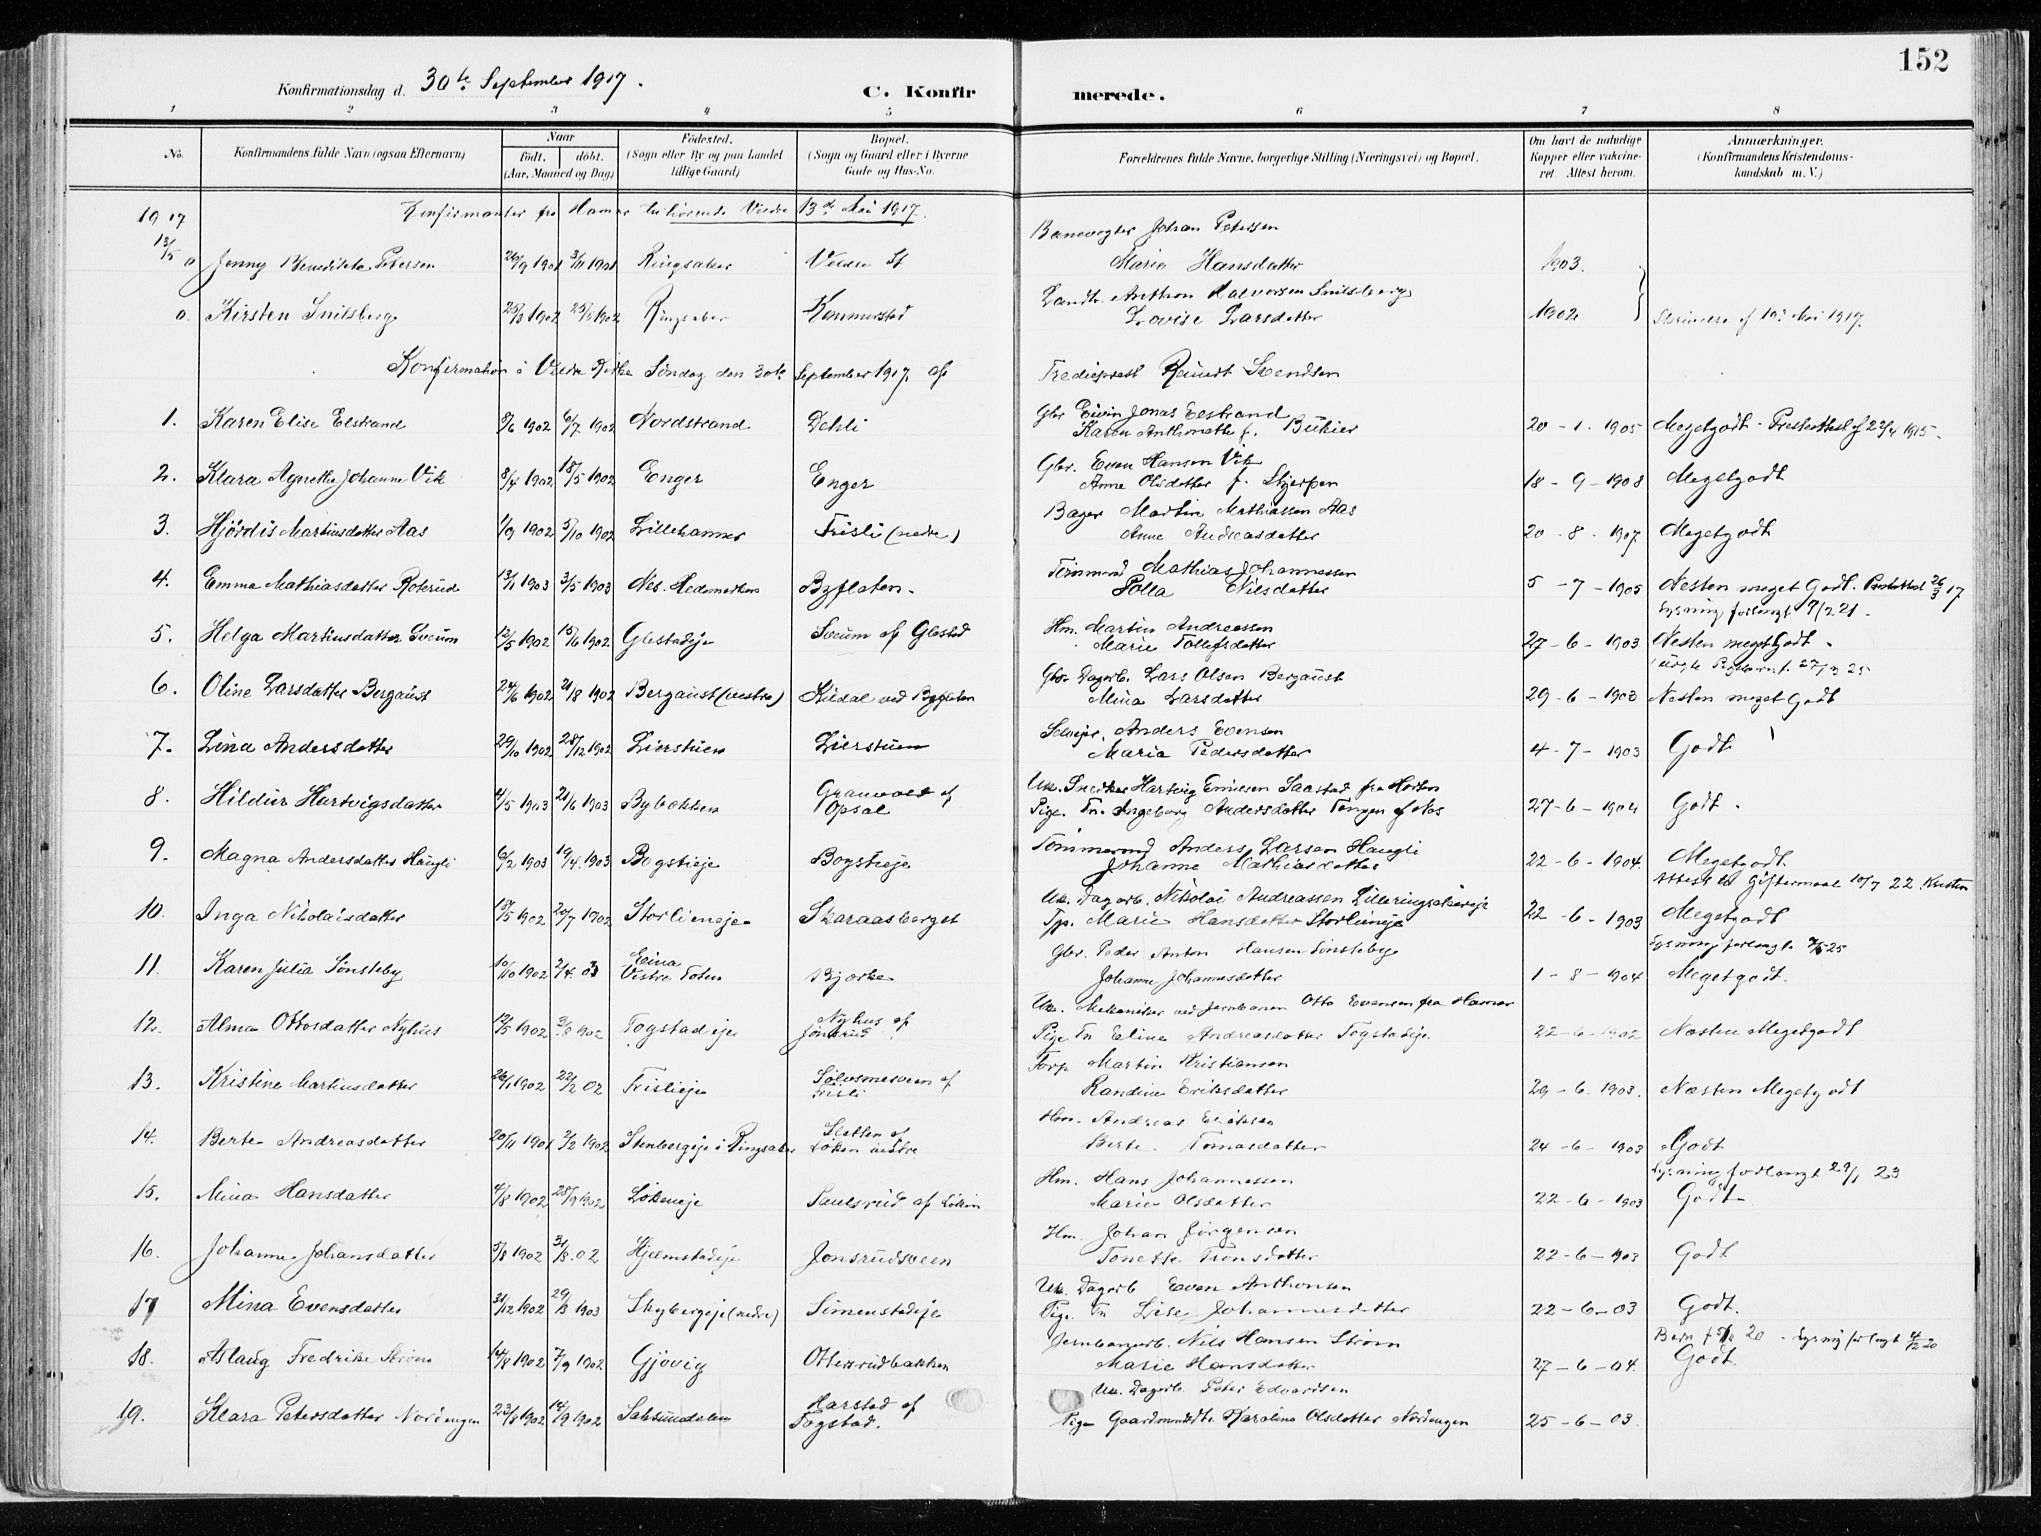 152
Konfirmationsdag d. 30te September 1917.
C. Konfirmerede.
1 2 3 4 5 6 7 8
No.
Konfirmandens fulde Navn (ogsaa Efternavn)
Naar
født. døbt.
(Aar, Maaned og Dag)
Fødested.
(Sogn eller By og paa Landet
tillige Gaard)
Bopæl.
(Sogn og Gaard eller i Byerne
Gade og Hus-No.
Forældrenes fulde Navne, borgerlige Stilling (Næringsvei) og Bopæl.
Om havt de naturlige
Kopper eller vakcine-
ret. Attest herom.
Anmærkninger.
(Konfirmandens Kristendoms-
kundskab m. V.)
1917 Konfirmanter fra Hamar tilhørende Veldre 13de Mai 1917.
13/5 Jenny Benedikte Petersen 1901 3/11 1901 Ringsaker Veldre St Banevogter Johan Petersen
Marie Hansdatter 1903.
Kirsten Snilsberg 25/3 1902 25/5 1902 Ringsaker Kommerstad Landh. Anthon Halvorsen Snilsberg
Lovise Larsdatter 1902 Skrivelse af 10. Mai 1917.
Konfirmation i Veldre Kirke Søndag den 30te September 1917 af Tredieprest Svendsen
1. Karen Elise Elstrand 8/6 1902 6/7 1902 Nordstrand Dehli Gbr. Eivin Jonas Elstrand
Karen Anthonette f. Bukier 20-1-1905 Megetgodt - Presteattest 1915.
2. Klara Agnethe Johanne Vik 8/4 1902 18/5 1902 Enger Enger Gbr. Even Hansen Vik
Anne Olsdatter f. Skjerpen 18-9-1908 Megetgodt
3. Hjørdis Martinsdatter Aas 1/9 1902 5/10 1902 Lillehammer Frisli (nedre) Bager Martin Mathiassen Aas
Anne Andreasdatter 20-8-1907 Megetgodt
4. Emma Mathiasdatter Roterud 13/1 1903 3/5 1903 Nes. Hedemarken Byflaten. Tømmermd Mathias Johannessen
Polla Nilsdatter 5-7-1905 Nesten meget Godt. Presteattest 26/3 17
Lysning forlangt 9/2 21.
5. Helga Martinsdatter Sveum 12/5 1902 15/6 1902 Glestadeje Sveum af Glestad Hm. Martin Andreassen
Marie Tollefsdatter 27-6-1903 Nesten megetgodt.
6. Oline Larsdatter Bergaust 24/6 1902 21/8 1902 Bergaust (vestre) Kildal ved Byflaten Gbr. Dagarb. Lars Olsen Bergaust
Mina Larsdatter 29-6-1903 Nesten meget Godt
7. Lina Andersdatter 29/10 1902 28/12 1902 Lierstuen Lierstuen Selvejer. Anders Evensen
Maria Pedersdatter 4-7-1903 Godt
8. Hildur Hartvigsdatter 4/5 1903 21/6 1903 Bybakken Granvold af
Opsal Uk. Snedker Hartvig Emilsen Saastad fra Horten
Pige. Tn. Ingeborg Andersdatter Tangen af Nes 27-6-1904 Godt.
9. Magna Andersdatter Haugli 6/2 1903 19/4 1903 Bogstieje Bogstieje Tømmermd Anders Larsen Haugli
Johanne Mathiasdatter 22-6-1904. Megetgodt.
Attest til Giftermaal 10/7 22. Kristen
10. Inga Nikolaisdatter 18/5 1902 20/7 1902 Storlieneje Skaraasberget Uk. Dagarb. Nikolai Andreassen Lilleringsakereje
Tjp. Marie Hansdatter Storlieneje 22-6-1903 Megetgodt
Lysning forlangt 25
11. Karen Julia Sønsteby 10/10 1902 2/4. 03 Eina
Vestre Toten Bjørke Gbr. Peder Anton Hansen Sønsteby
Johanne Johannesdatter 1-8-1904 Megetgodt.
12. Alma Ottosdatter Nyhus 12/5 1902 3/8 1902 Fogstadeje Nyhus af
Jønsrud Uk. Mekaniker ved Jernbanen Otto Evensen fra Hamar
Pige Tn Eline Andreasdatter Fogstadeje 22-6-1902 Næsten Megetgodt
13. Kristine Martinsdatter 26/1 1902 22/2 02 Frislieje af
Frisli Torp. Martin Kristiansen
Randine Eriksdatter 29-6-1903. Næsten Megetgodt
14. Berte Andreasdatter 20/11 1901 2/2 1902 Stenbergeje i Ringsaker Sletten af
Løken vestre Hm. Andreas Eriksen
Berte Tomasdatter 24-6-1903 Godt
Lysning forlangt 29/1 23
15. Mina Hansdatter 4/8 1902 28/9 1902 Løkeneje Paulsrud af Løken Hm. Hans Johannessen
Marie Olsdatter 22-6-1903 Godt
16. Johanne Johansdatter 5/8 1902 31/8. 02 Hjelmstadeje Jonsrudsveen Hm. Johan Jørgensen
Tonette Tronsdatter 22-6-1903 Godt
17 Mina Evensdatter 31/12 1902 29/3 1903 Skybergeje (nedre) Simenstadeje Uk. Dagarb Even Anthonsen
Pige. Tn Lise Johannesdatter 22-6-03 Godt.
18. Aslaug Fredrike Strøm 14/8 1902 7/9 1902 Gjøvig Ottersrudbakken Jernbanearb. Nils Hansen Strøm
Marie Hansdatter 27-6-04. Godt.
19. Klara Petersdatter Nordengen 23/8 1902 14/9 1902 Saksumdalen Harstad af
Fogstad. Uk. Dagarb. Peter Edvardsen
Pige Gaardmandsdt. Karoline Olsdatter Nordengen 25-6-03.